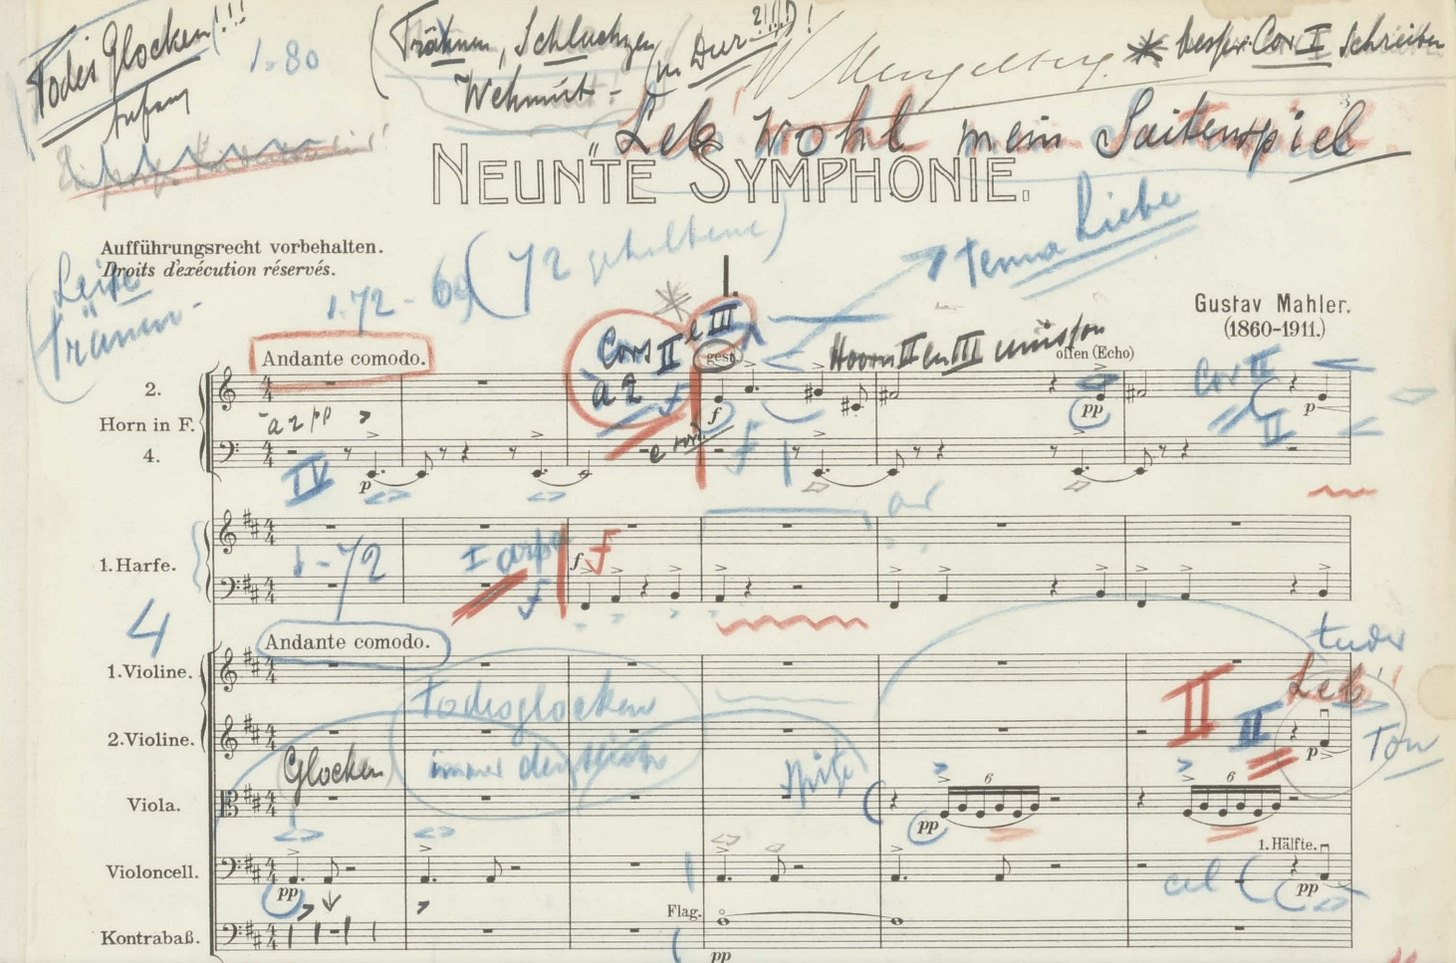 Todes Glocken!!!
Anfang
1-80
(Trähnen, Schluchzen
Wehmut - in Dur
Mengelberg
* Cor I Schreiben
Leb' wohl mein Saitenspiel
NEUNTE SYMPHONIE.
Aufführungsrecht vorbehalten.
Droits d'exécution réservés.
72 - 69 (72 gehaltene)
Tema Liebe
Leise
I.
Gustav Mahler.
(1860-1911.)
Andante comodo.
Cors II e III
à 2 f
gest.
Hoorn II en III
offen (Echo)
Cor II
2.
Horn in F.
4.
à 2 pp
IV
p
f
f
pp
II
p
1. Harfe.
72
I arpa
f
f
f
4
Andante comodo.
1. Violine.
Todesglocken
Leb'
II
II
2. Violine.
p
Ton
Glocken
immer
Viola.
6
6
pp
Violoncell.
pp
1. Hälfte.
cel
pp
Kontrabaß.
Flag.
pp